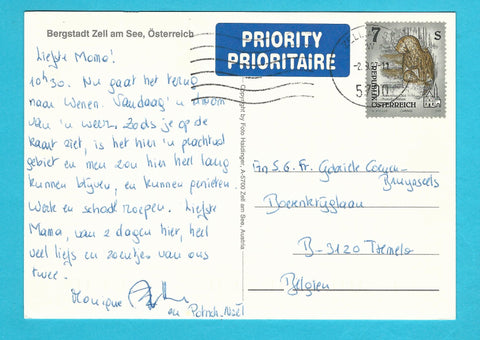 Bergstadt Zell am See, Österreich
Liefste Mama!
10h30. Nu gaat het terug
naar Wenen. Vandaag 'n droom
van 'n weer, zoals je op de
kaart ziet, is het hier 'n prachtig
gebied en men zou hier heel lang
kunnen blijven, en kunnen genieten.
Werk en school roepen. Liefste
Mama, van 2 dagen hier, heel
veel liefs en zoentjes van ons
twee.
Monique
en Patrick-Noël
Copyright by Foto Haidinger, A-5700 Zell am See, Austria
PRIORITY
PRIORITAIRE
5700
7 S
REPUBLIK
ÖSTERREICH
Fr. Gabriele
B-3120 Tremelo
Belgien